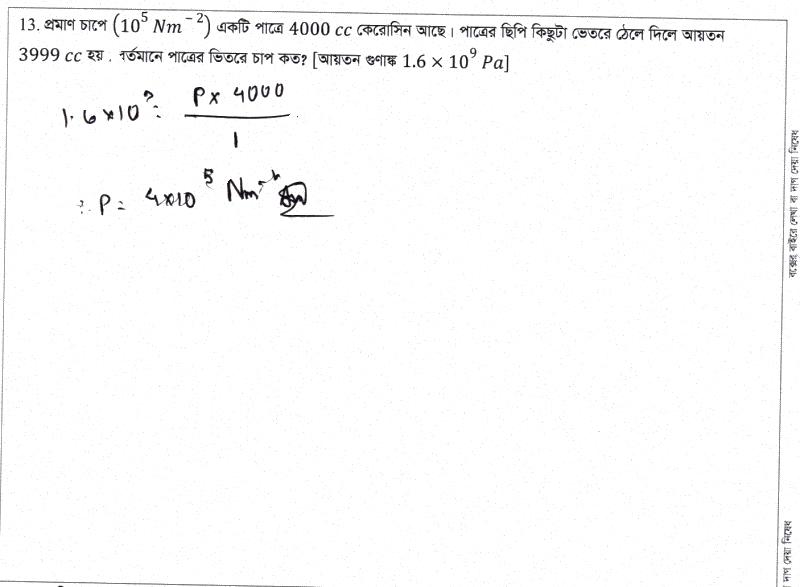 13. প্রমাণ চাপে (10⁵ Nm⁻²) একটি পাত্রে 4000 cc কেরোসিন আছে। পাত্রের ছিপি কিছুটা ভেতরে ঠেলে দিলে আয়তন
3999 cc হয়. বর্তমানে পাত্রের ভিতরে চাপ কত? [আয়তন গুণাঙ্ক 1.6 × 10⁹ Pa]
1.6×10⁹ = P× 4000 / 1
∴ P = 4×10⁵ Nm⁻²
বক্সের বাইরে লেখা বা দাগ দেয়া নিষেধ
দাগ দেয়া নিষেধ